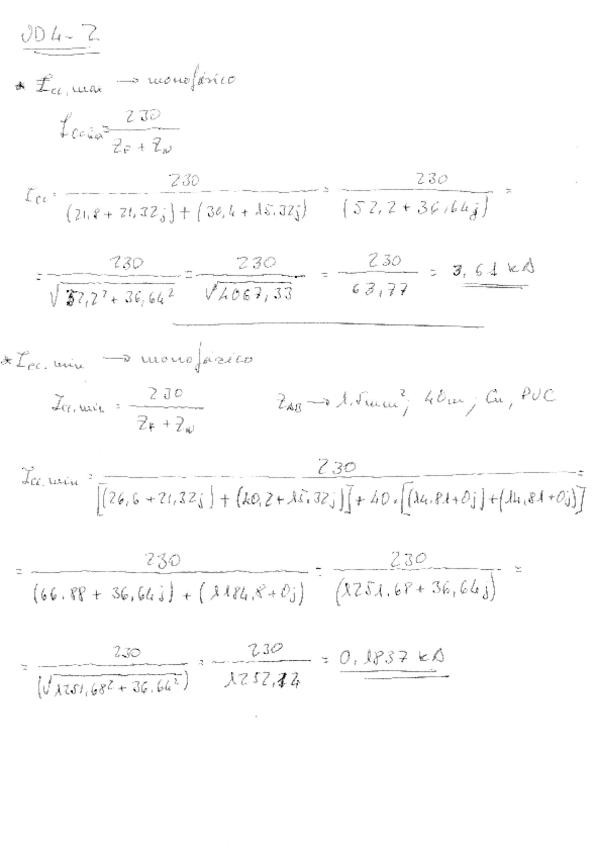 JD4-2
* Icc,max → monofásico
Iccmax = 230 / (ZF + ZN)
Icc = 230 / ((21,8 + 21,32j) + (30,4 + 15.32j)) = 230 / (52,2 + 36,64j) =
= 230 / √(52,2² + 36,64²) = 230 / √4067,33 = 230 / 63,77 = 3,61 kA
* Icc,min → monofásico
Icc,min = 230 / (ZF + ZN) ZAB → 1.5mm², 40m, Cu, PVC
Icc,min = 230 / ([(26,6 + 21,32j) + (40,2 + 15.32j)] + 40·[(14.81 + 0j) + (14,81 + 0j)]) =
= 230 / ((66.88 + 36,64j) + (1184,8 + 0j)) = 230 / (1251,68 + 36,64j) =
= 230 / (√(1251,68² + 36.64²)) = 230 / 1252,24 = 0,1837 kA